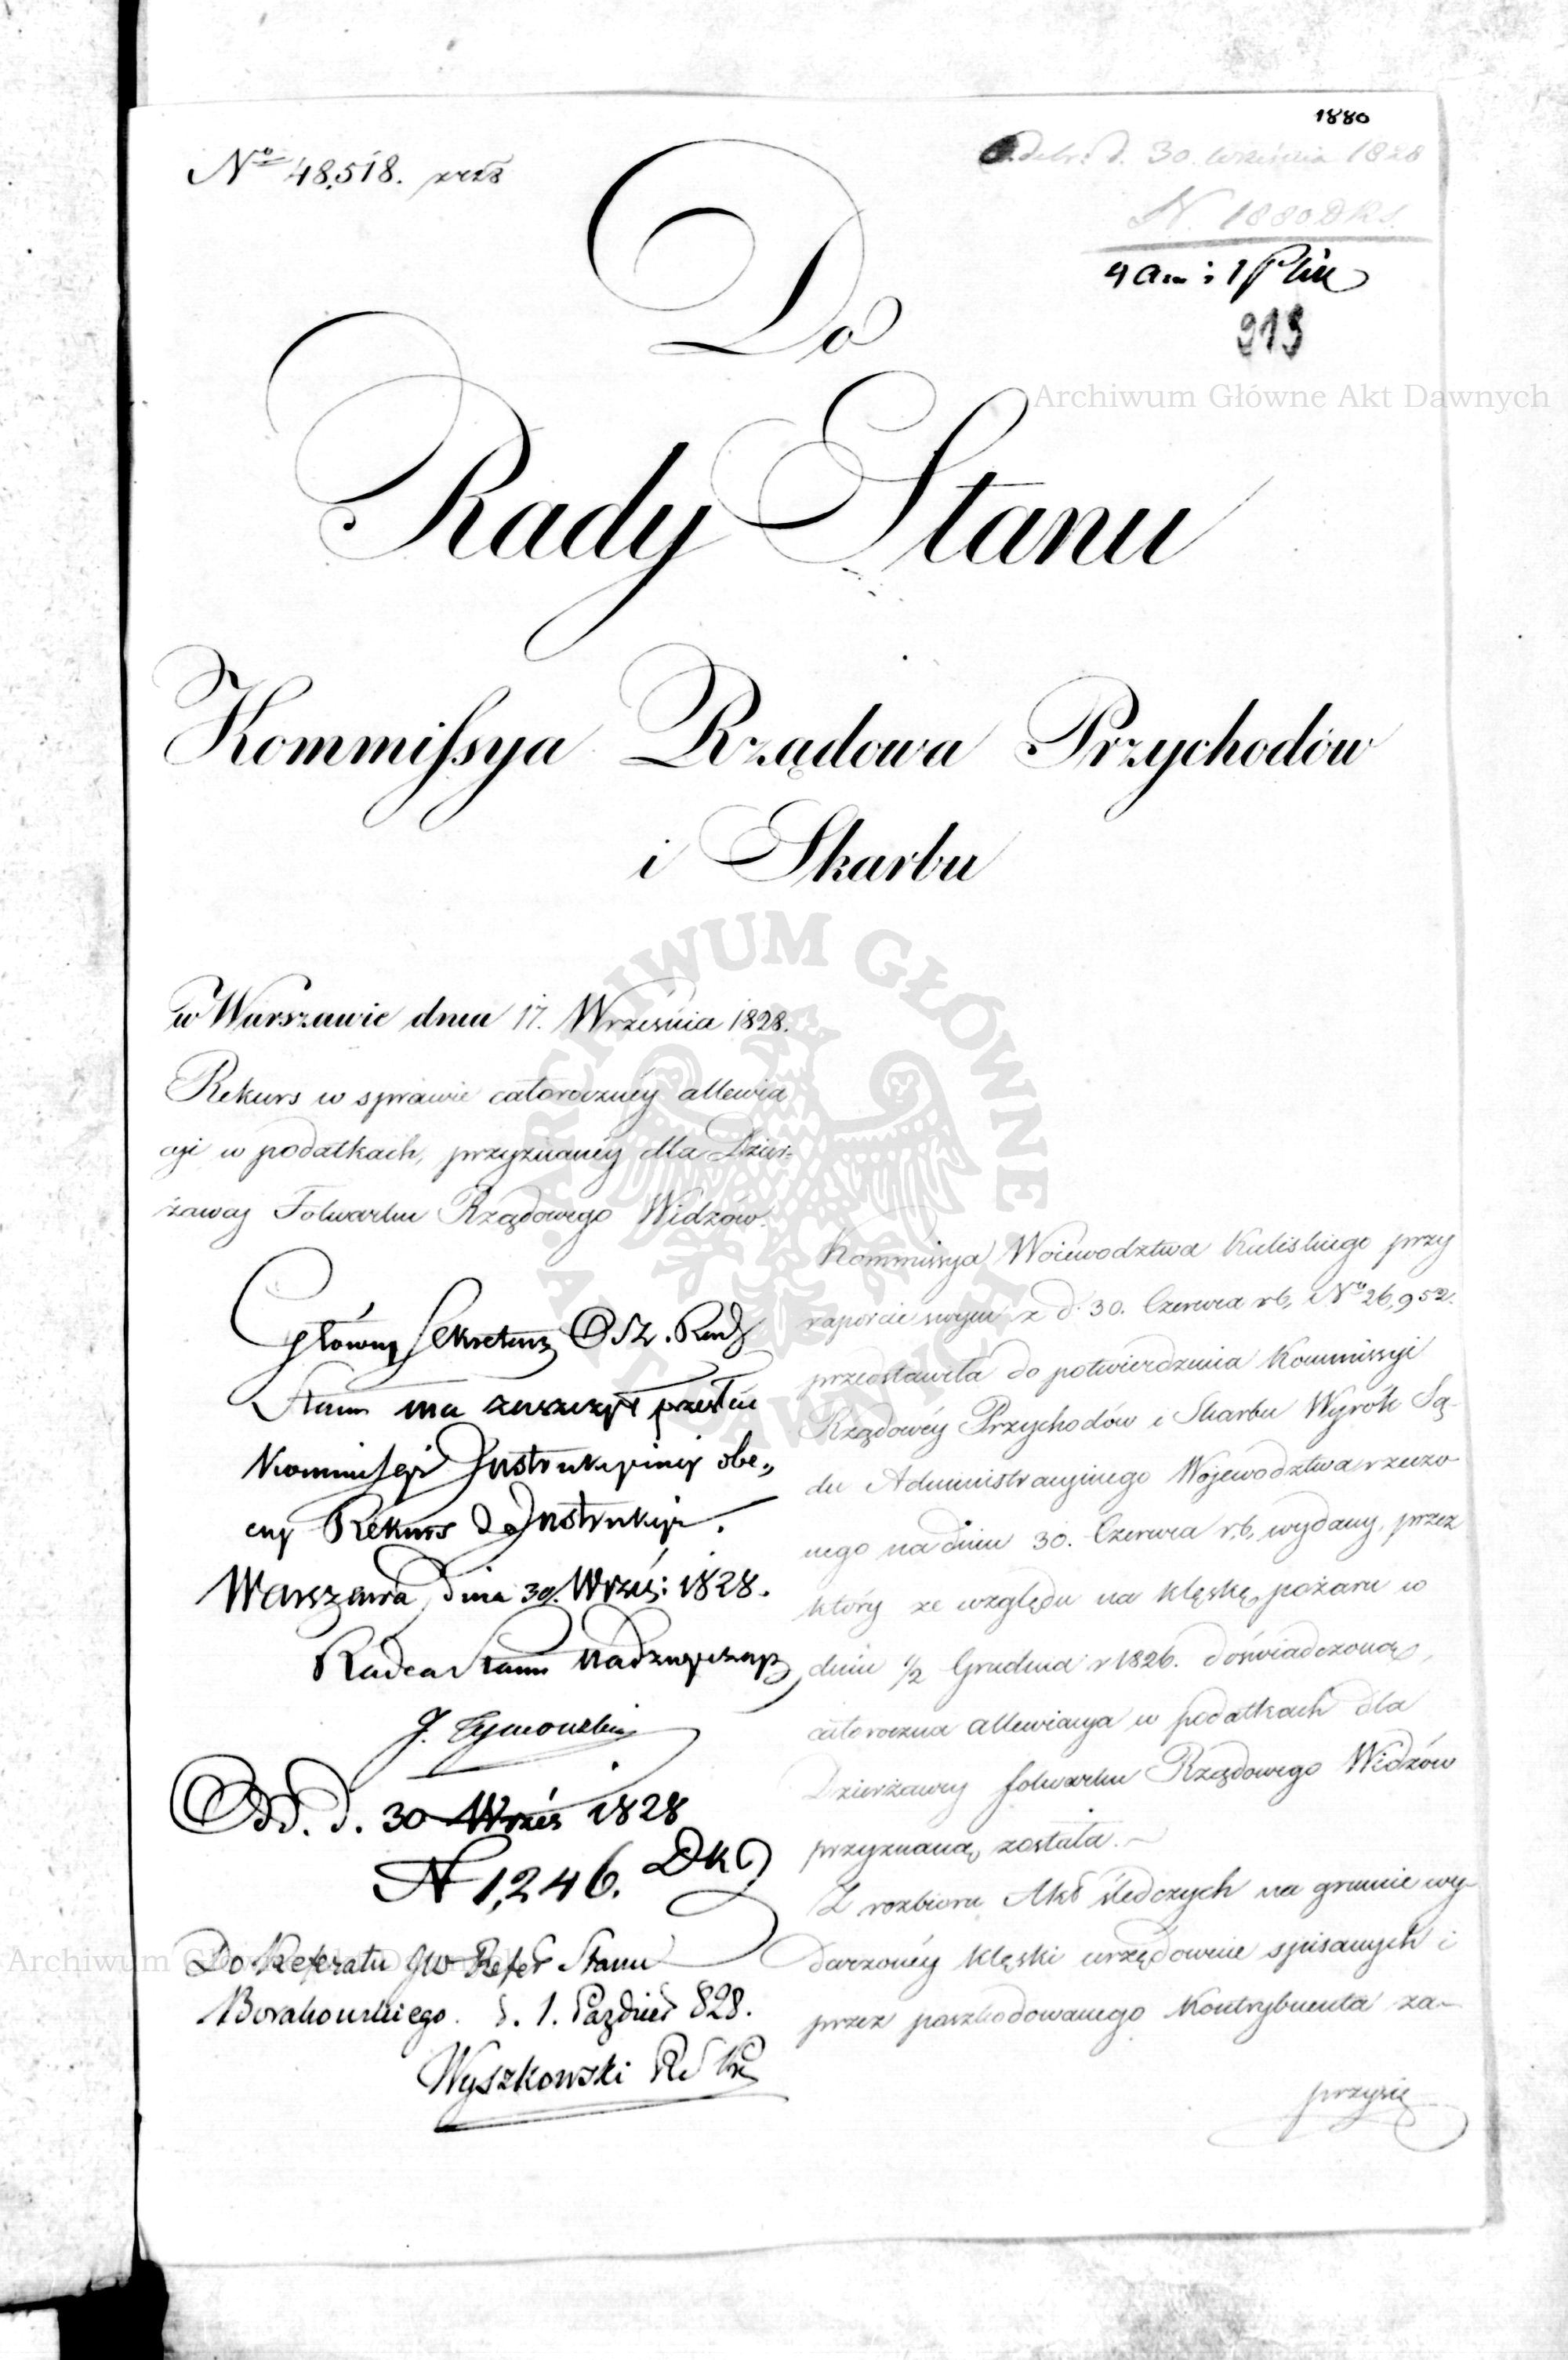 1880
No 48,518.
Odebr: d. 30. Września 1828
N. 1880 DKS.
913
Do
Rady Stanu
Kommissya Rządowa Przychodów
i Skarbu
w Warszawie dnia 17. Września 1828.
Rekurs w sprawie całoroczney allewia
cyi w podatkach, przyznaney dla Dzier-
żawcy Folwarku Rządowego Widzów.
Główny Sekretarz Rady
Stanu ma zaraz przesłać
Kommissyi Instrukcyiney obe„
cny Rekurs do Instrukcyi.
Warszawa dnia 30. Wrześ: 1828.
Radca Stanu Nadzwyczayny
J. Tymowski
Od. d. 30 Wrześ 1828
N 1,246. DKS
Do Referatu JW Refer Stanu
Borakowskiego. d. 1. Paździer 828.
Wyszkowski
Kommissya Woiewodztwa Kaliskiego przy
raporcie swym z d. 30. Czerwca r.b. No 26,952.
przedstawiła do potwierdzenia Kommissyi
Rządowéy Przychodów i Skarbu Wyrok Są-
du Administracyinego Województwa rzeczo
nego na dniu 30. Czerwca r.b. wydany, przez
który ze względu na klęskę pożaru w
dniu 1/2 Grudnia r 1826. doświadczoną,
całoroczna allewiacya w podatkach dla
Dzierżawcy folwarku Rządowego Widzów
przyznaną została.
Z rozbioru Akt śledczych na gruncie wy-
darzonéy klęski urzędownie spisanych i
przez poszkodowanego Kontrybuenta za-
przysię
Archiwum Główne Akt Dawnych
ARCHIWUM GŁÓWNE AKT DAWNYCH